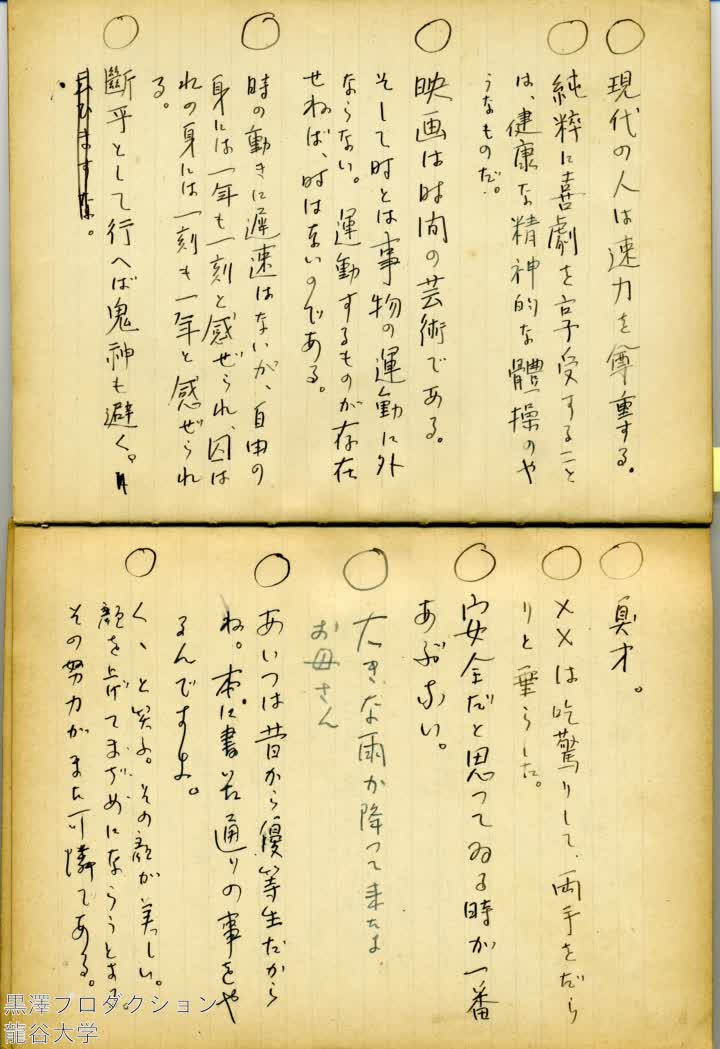 ○ 現代の人は速力を尊重する。
○ 純粋に喜劇を享受すること
は、健康な精神的な體操のや
うなものだ。
○ 映画は時間の芸術である。
そして時とは事物の運動に外
ならない。運動するものが存在
せねば、時はないのである。
○ 時の動きに遅速はないが、自由の
身には一年も一刻と感ぜられ、囚は
れの身には一刻も一年と感ぜられ
る。
○ 斷乎として行へば鬼神も避く。
○ 臭才。
○ ××は吃驚りして、両手をだら
りと垂らした。
○ 安全だと思つてゐる時が一番
あぶない。
○ 大きな雨が降つて来たよ
お母さん
○ あいつは昔から優等生だから
ね。本に書いた通りの事をや
るんですよ。
○ くゝと笑ふ。その顔が美しい。
顔を上げてまじめにならうとする。
その努力がまた可憐である。
黒澤プロダクション
龍谷大学